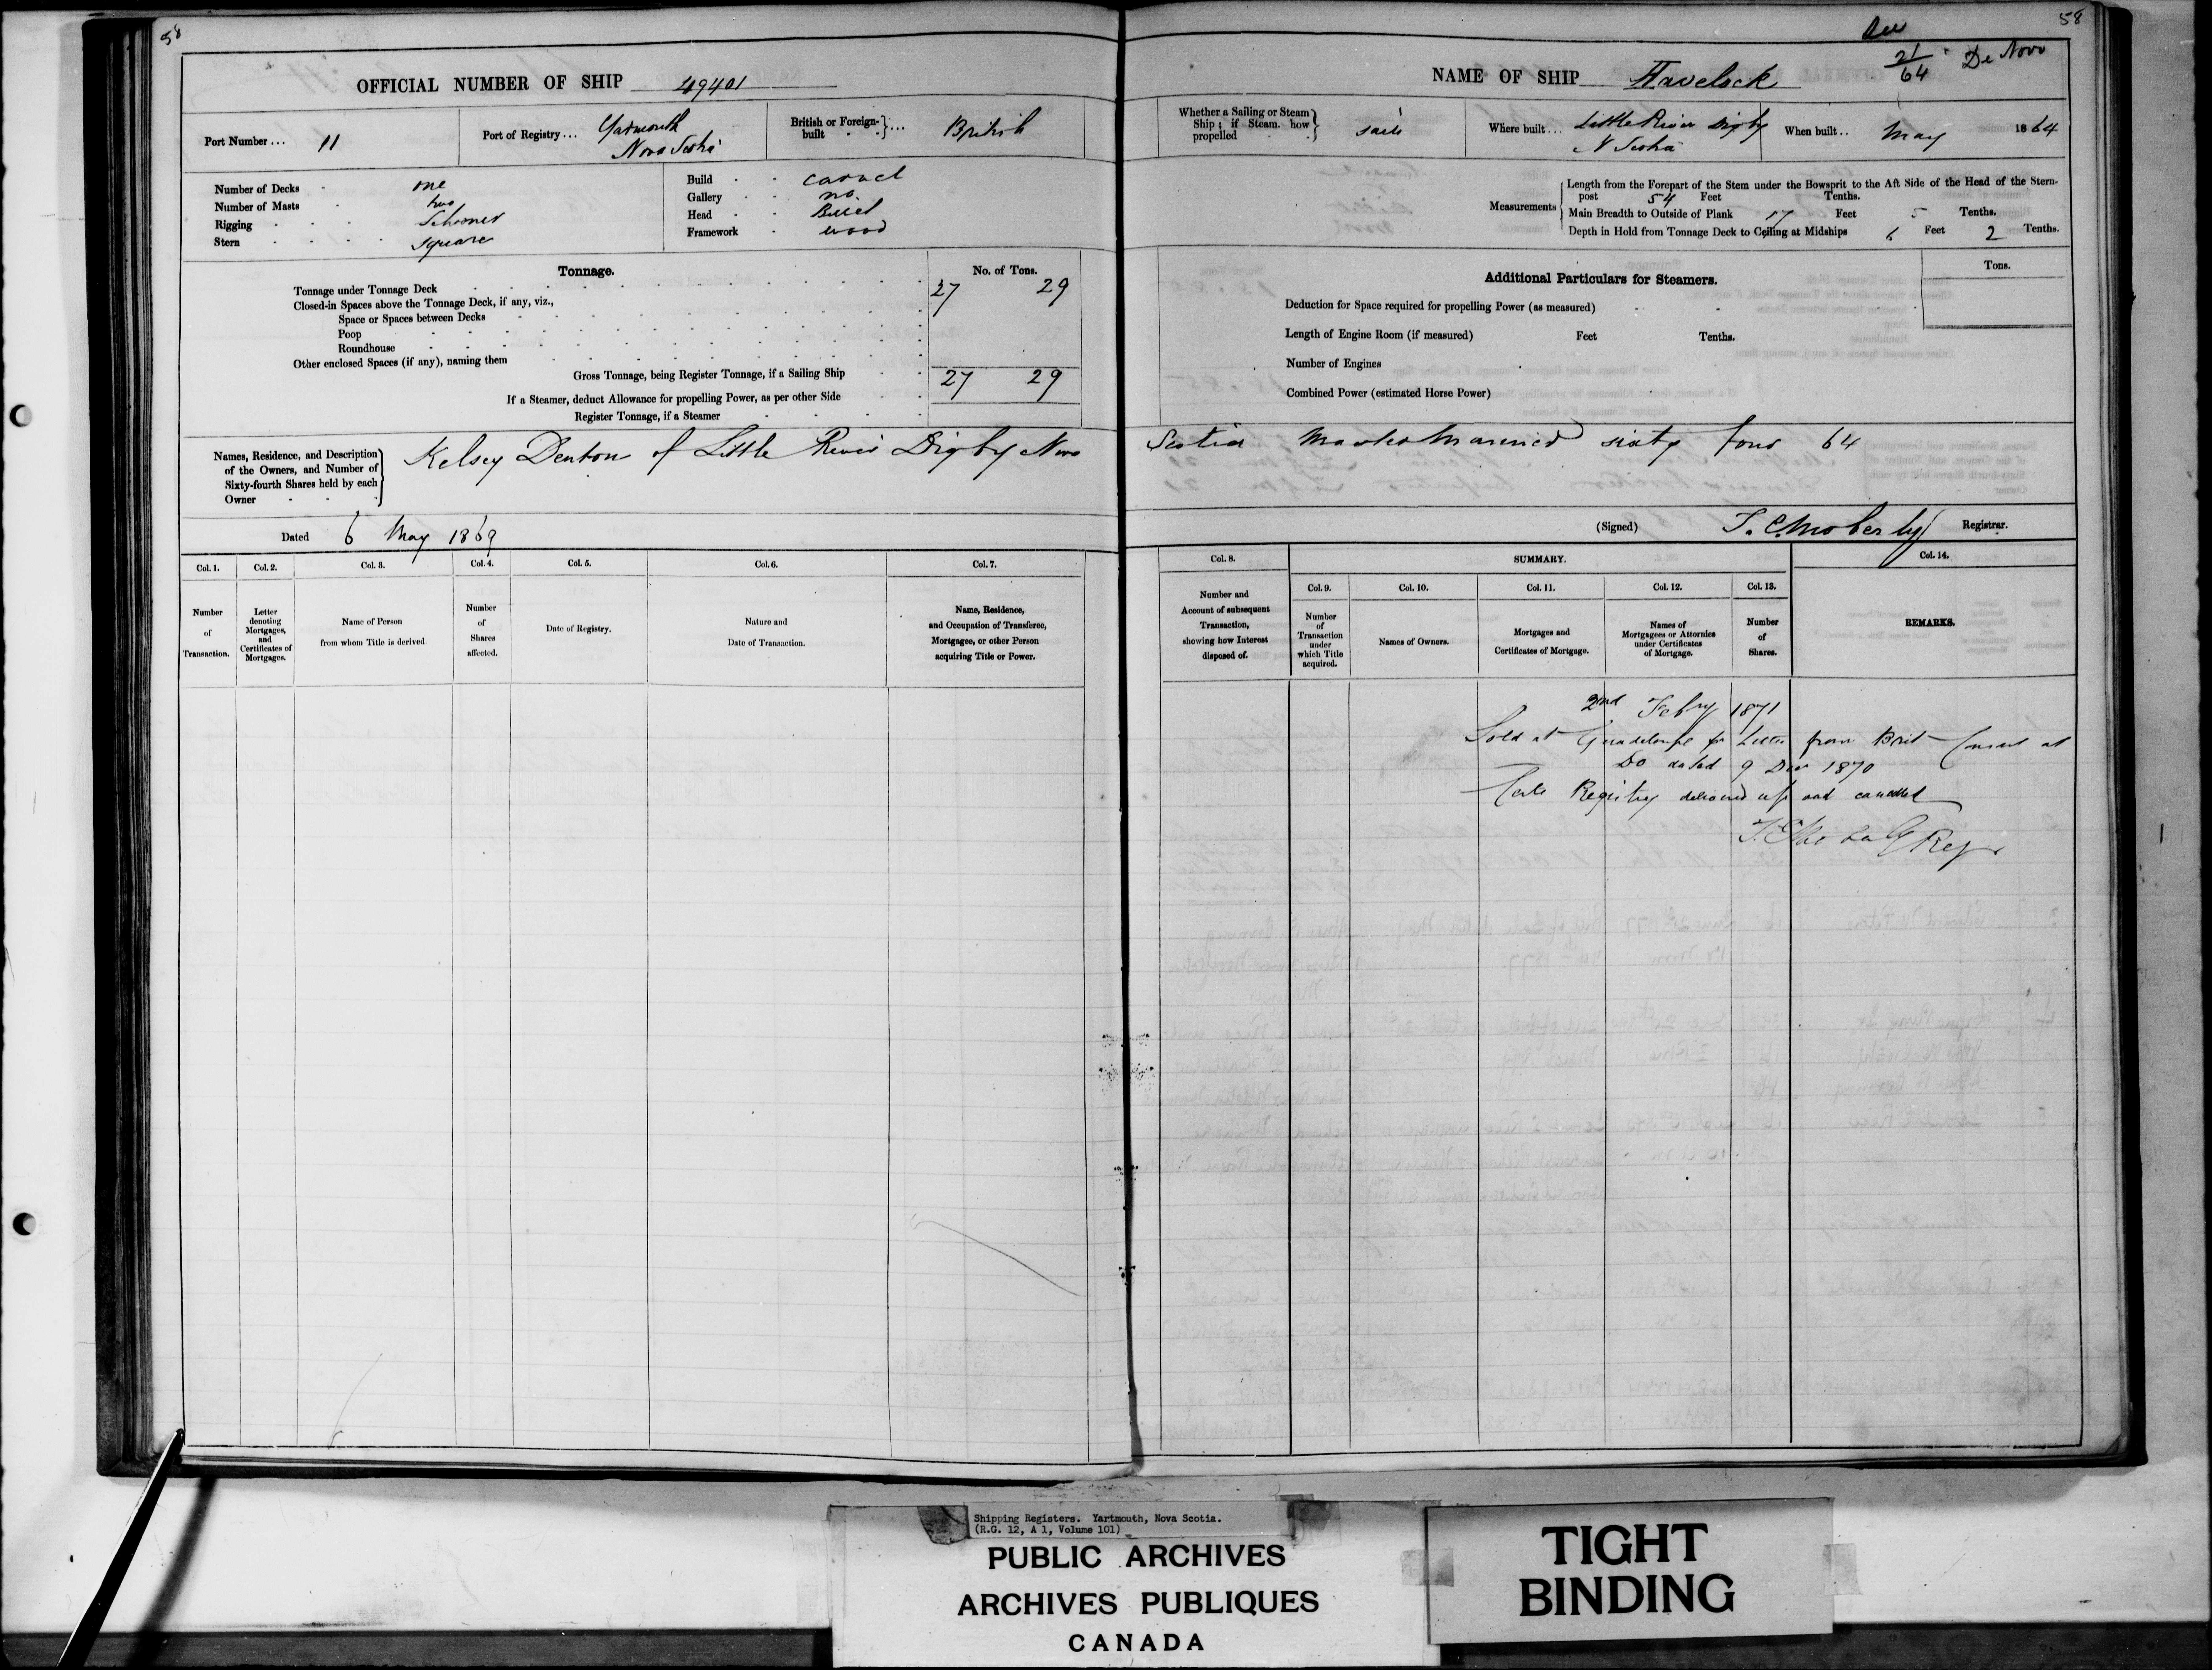 58
OFFICIAL NUMBER OF SHIP 49401
Port Number... 11
Port of Registry... Yarmouth
Nova Scotia
British or Foreign-built } ... British
Number of Decks - one
Number of Masts - two
Rigging - Schooner
Stern - square
Build - carvel
Gallery - no
Head - Billet
Framework - wood
Tonnage.
No. of Tons.
Tonnage under Tonnage Deck 27 29
Closed-in Spaces above the Tonnage Deck, if any, viz.,
Space or Spaces between Decks
Poop
Roundhouse
Other enclosed Spaces (if any), naming them
Gross Tonnage, being Register Tonnage, if a Sailing Ship 27 29
If a Steamer, deduct Allowance for propelling Power, as per other Side
Register Tonnage, if a Steamer
Names, Residence, and Description of the Owners, and Number of Sixty-fourth Shares held by each Owner
Kelsey Denton of Little River Digby Nova
Dated 6 May 1869
Col. 1. Col. 2. Col. 3. Col. 4. Col. 5. Col. 6. Col. 7.
Number of Transaction.
Letter denoting Mortgages, and Certificates of Mortgages.
Name of Person from whom Title is derived
Number of Shares affected.
Date of Registry.
Nature and Date of Transaction.
Name, Residence, and Occupation of Transferee, Mortgagee, or other Person acquiring Title or Power.
58
NAME OF SHIP Havelock
21/64 De Novo
Whether a Sailing or Steam Ship; if Steam, how propelled } sails
Where built... Little River Digby
N Scotia
When built.. May 1864
Measurements
Length from the Forepart of the Stem under the Bowsprit to the Aft Side of the Head of the Stern-
post 54 Feet Tenths.
Main Breadth to Outside of Plank 17 Feet 5 Tenths.
Depth in Hold from Tonnage Deck to Ceiling at Midships 6 Feet 2 Tenths.
Additional Particulars for Steamers.
Tons.
Deduction for Space required for propelling Power (as measured)
Length of Engine Room (if measured) Feet Tenths.
Number of Engines
Combined Power (estimated Horse Power)
Scotia Master Mariner sixty four 64
(Signed) T. C. Moberly Registrar.
Col. 8. SUMMARY. Col. 14.
Col. 9. Col. 10. Col. 11. Col. 12. Col. 13.
Number and Account of subsequent Transaction, showing how Interest disposed of.
Number of Transaction under which Title acquired.
Names of Owners.
Mortgages and Certificates of Mortgage.
Names of Mortgagees or Attornies under Certificates of Mortgage.
Number of Shares.
REMARKS.
2nd Febry 1871
Sold at Guadeloupe pr Letter from Brit Consul at
Do dated 9 Dec 1870
Registry delivered up and cancelled
Shipping Registers. Yartmouth, Nova Scotia.
(R.G. 12, A 1, Volume 101)
PUBLIC ARCHIVES
ARCHIVES PUBLIQUES
CANADA
TIGHT
BINDING